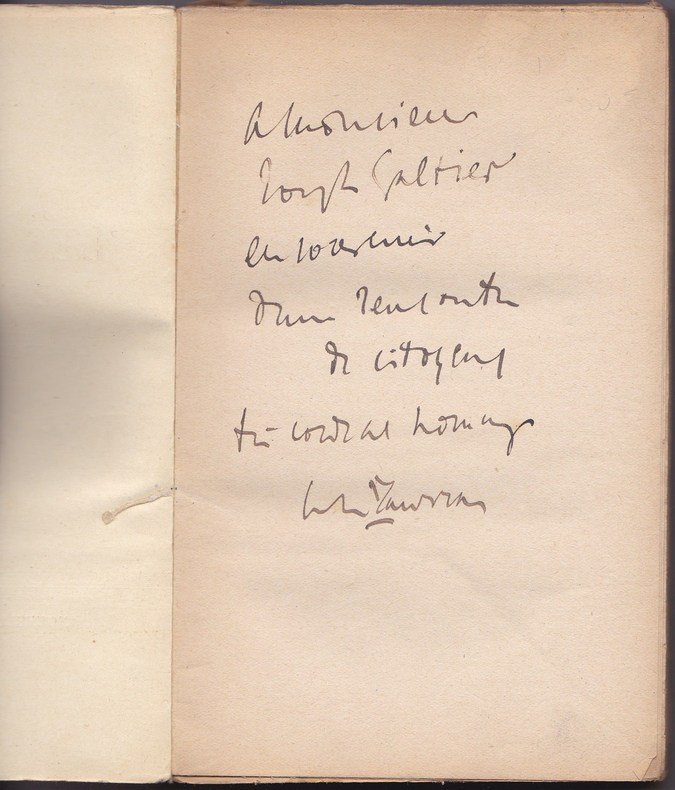 A Monsieur
Joseph Galtier
en souvenir
d'une rencontre
de citoyens
très cordial hommage